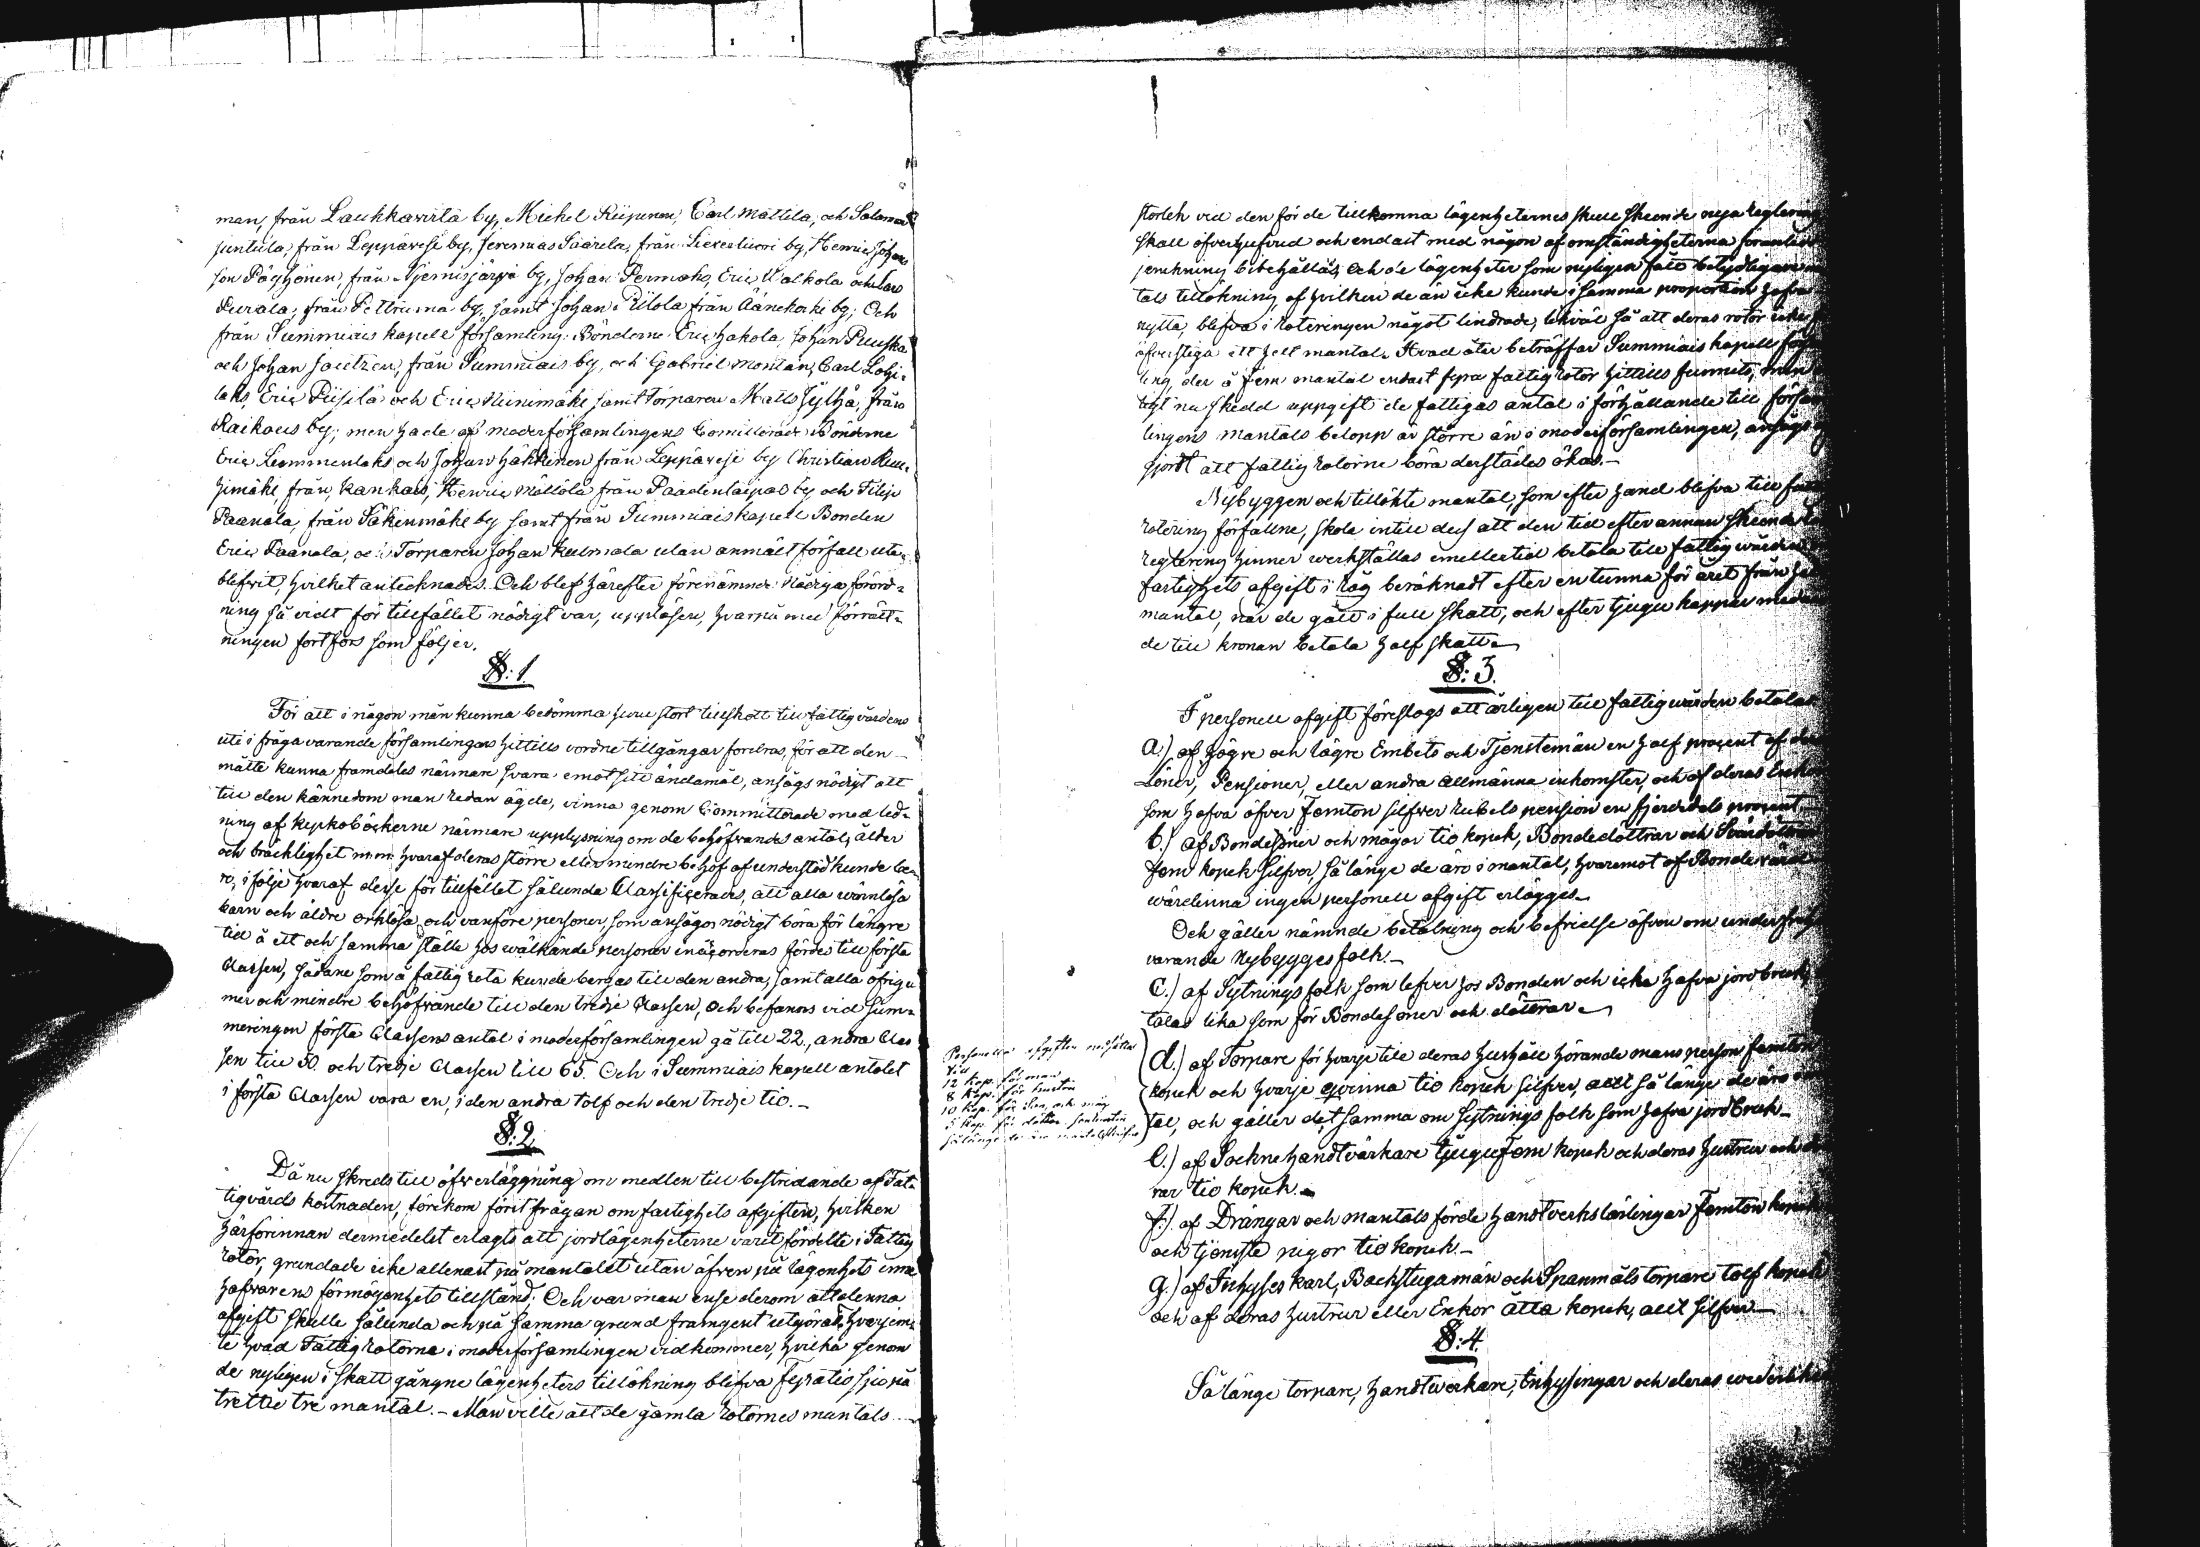 man, från Laukkavirta by, Michel Riipinen, Carl Mattila, och Salomon
Juntula, från Leppävesi by, Jeremias Säärelä, från by, Henric Johans
son Pöyhönen, från Njemisjärvi by, Johan Permaks, Eric Walkola och Lars
Purala, från Pettruma by, samt Johan Pitola från Äänekoski by; Och
från Summiais kapell församling Bönderne Eric Hakola, Johan Puuska
och Johan från Summiais by och Gabriel Montan, Carl Lohi-
laks, Eric Piisilä och Eric Niinimäki samt Torparen Matts Jylhä, från
Raikaus by; men hade af moderförsamlingens Comitterade Bönderne
Eric Lemmenlaks och Johan Häkkinen från Leppävesi by Christian Ruu-
himäki, från Kankais, Henric Möttölä från Paadentaipal by och Filip
Paanala, från Säkinmäki by samt från Summiais kapell Bonden
Eric Paanala, och Torparen Johan Kulmala utan anmält förfall ute-
blifvit, hvilket antecknades. Och blef härefter förenämnde Nådiga förord-
ning så vidt för tillfället nödigt var, uppläsen, hvarpå med förrätt-
ningen fortfors som följer.
§: 1.
För att i någon mån kunna bedömma huru stort tillskott till fattigvårdens
uti i fråga varande församlingars hittills vordne tillgångar fordras, för att den
måtte kunna framdeles närmare svara emot sitt ändamål, ansågs nödigt att
till den kännedom man redan ägde, vinna genom Committerade med led-
ning af kyrkoböckerne närmare upplysning om de behöfvandes antal, ålder
och bräcklighet m.m. hvaraf deras större eller mindre behof af understöd kunde be-
ro, i följe hvaraf desse för tillfället sålunda Classificerades, att alla wärnlösa
barn och äldre orklösa och vanföre personer, som ansågos nödigt böra för längre
tid å ett och samma ställe hos wälkände personer inackorderas fördes till första
Classen, sådane som å fattig rota kunde bergas till den andra, samt alla öfriga
mer och mindre behöfvande till den tredje Classen, Och befanns vid sum-
meringen första Classens antal i moderförsamlingen gå till 22, andra Clas
sen till 50. och tredje Classen till 65. Och i Summiais kapell antalet
i första Classen vara en, i den andra tolf och den tredje tio.-
§: 2.
Då nu skreds till öfwerläggning om medlen till bestridande af Fat-
tigvårds kostnaden, förekom först frågan om fastighets afgiften, hvilken
härförinnan dermedelst erlagts att jordlägenheterne varit fördelte i Fattig
rotor, grundade icke allenast på mantalet utan äfven på lägenhets inne
hafvarens förmögenhets tillstånd. Och var man ense derom att denna
afgift skulle sålunda och på samma grund framgent utgöras, hvarjem-
te hvad Fattig rotorna i moderförsamlingen vidkommer, hvilka genom
de nyligen i skatt gångne lägenheters tillökning blifva Fyratio sju på
trettie tre mantal. - Man ville att de gamla rotornes mantals
storlek vid den för de tillkomna lägenheternes skull skeende nya reglering
skall öfverhufvud och endast med någon af omständigheterna föranledd
jemkning bibehållas, Och de lägenheter som nyligen fått betydligare
tals tillökning af hvilken de än icke kunde i samma proportion hafva
nytta, blifva i roteringen något lindrade, likväl så att deras rotor icke
öfverstiga ett helt mantal. Hvad åter beträffar Summiais kapell församl
ling, der å fem mantal endast fyra fattig rotor hittills funnits, men
enligt nu skedd uppgift de fattigas antal i förhållande till försam
lingens mantals belopp är större än i moderförsamlingen, ansågs
gjordt att fattig rotorne böra derstädes ökas.-
Nybyggen och tillökte mantal, som efter hand blifva till
rotering förfallne, skola intill dess att den till efter annan skeende
reglering hinner werkställas emellertid betala till fattigvården
fastighets afgift i råg beräknadt efter en tunna för året från
mantal, när de gått i full skatt, och efter tjugu kappar medan
de till kronan betala half skatt.
§: 3.
I personell afgift föreslogs att årligen till fattigwården betalas
a.) af högre och lägre Embets och Tjenstemän en half procent af
Löner, Pensioner, eller andra allmänna inkomster, och af deras Enkor
som hafva öfver Femton silfver rubels pension en fjerdedels procent
b.) af Bondesöner och mågar tio kopek, Bondedöttrar och
fem kopek silfver, så länge de äro i mantal, hvaremot af Bonde
wärdinna ingen personell afgift erlägges.
Och gäller nämnde betalning och befrielse äfven om under
varande Nybygges folk.-
c.) af Sytnings folk som lefver hos Bonden och icke hafva jordbruk
talas lika som för Bondesöner och döttrar.
d.) af Torpare för hvarje till deras hushåll hörande mans person femton
kopek och hvarje qvinna tio kopek silfver, allt så länge de äro i
tal, och gäller det samma om sytnings folk som hafva jordbruk.
Personella afgiften nedsättes
till
12 kop. för man
8 kop. för hustru
10 kop. för son och måg
5 kop. för dotter, sonhustru
så länge de äro mantalskrifne
e.) af Sockne handtvärkare tjugufem kopek och deras hustrur och
rar tio kopek.
f.) af Drängar och mantals förde handtverks lärlingar femton kopek
och tjenste pigor tio kopek.-
g.) af Inhyses karl, Backstuga män och Spanmåls torpare tolf kopek
och af deras hustrur eller Enkor åtta kopek, allt silfver.
§: 4.
Så länge torpare, handtwerkare, Inhysingar och deras wederlikar